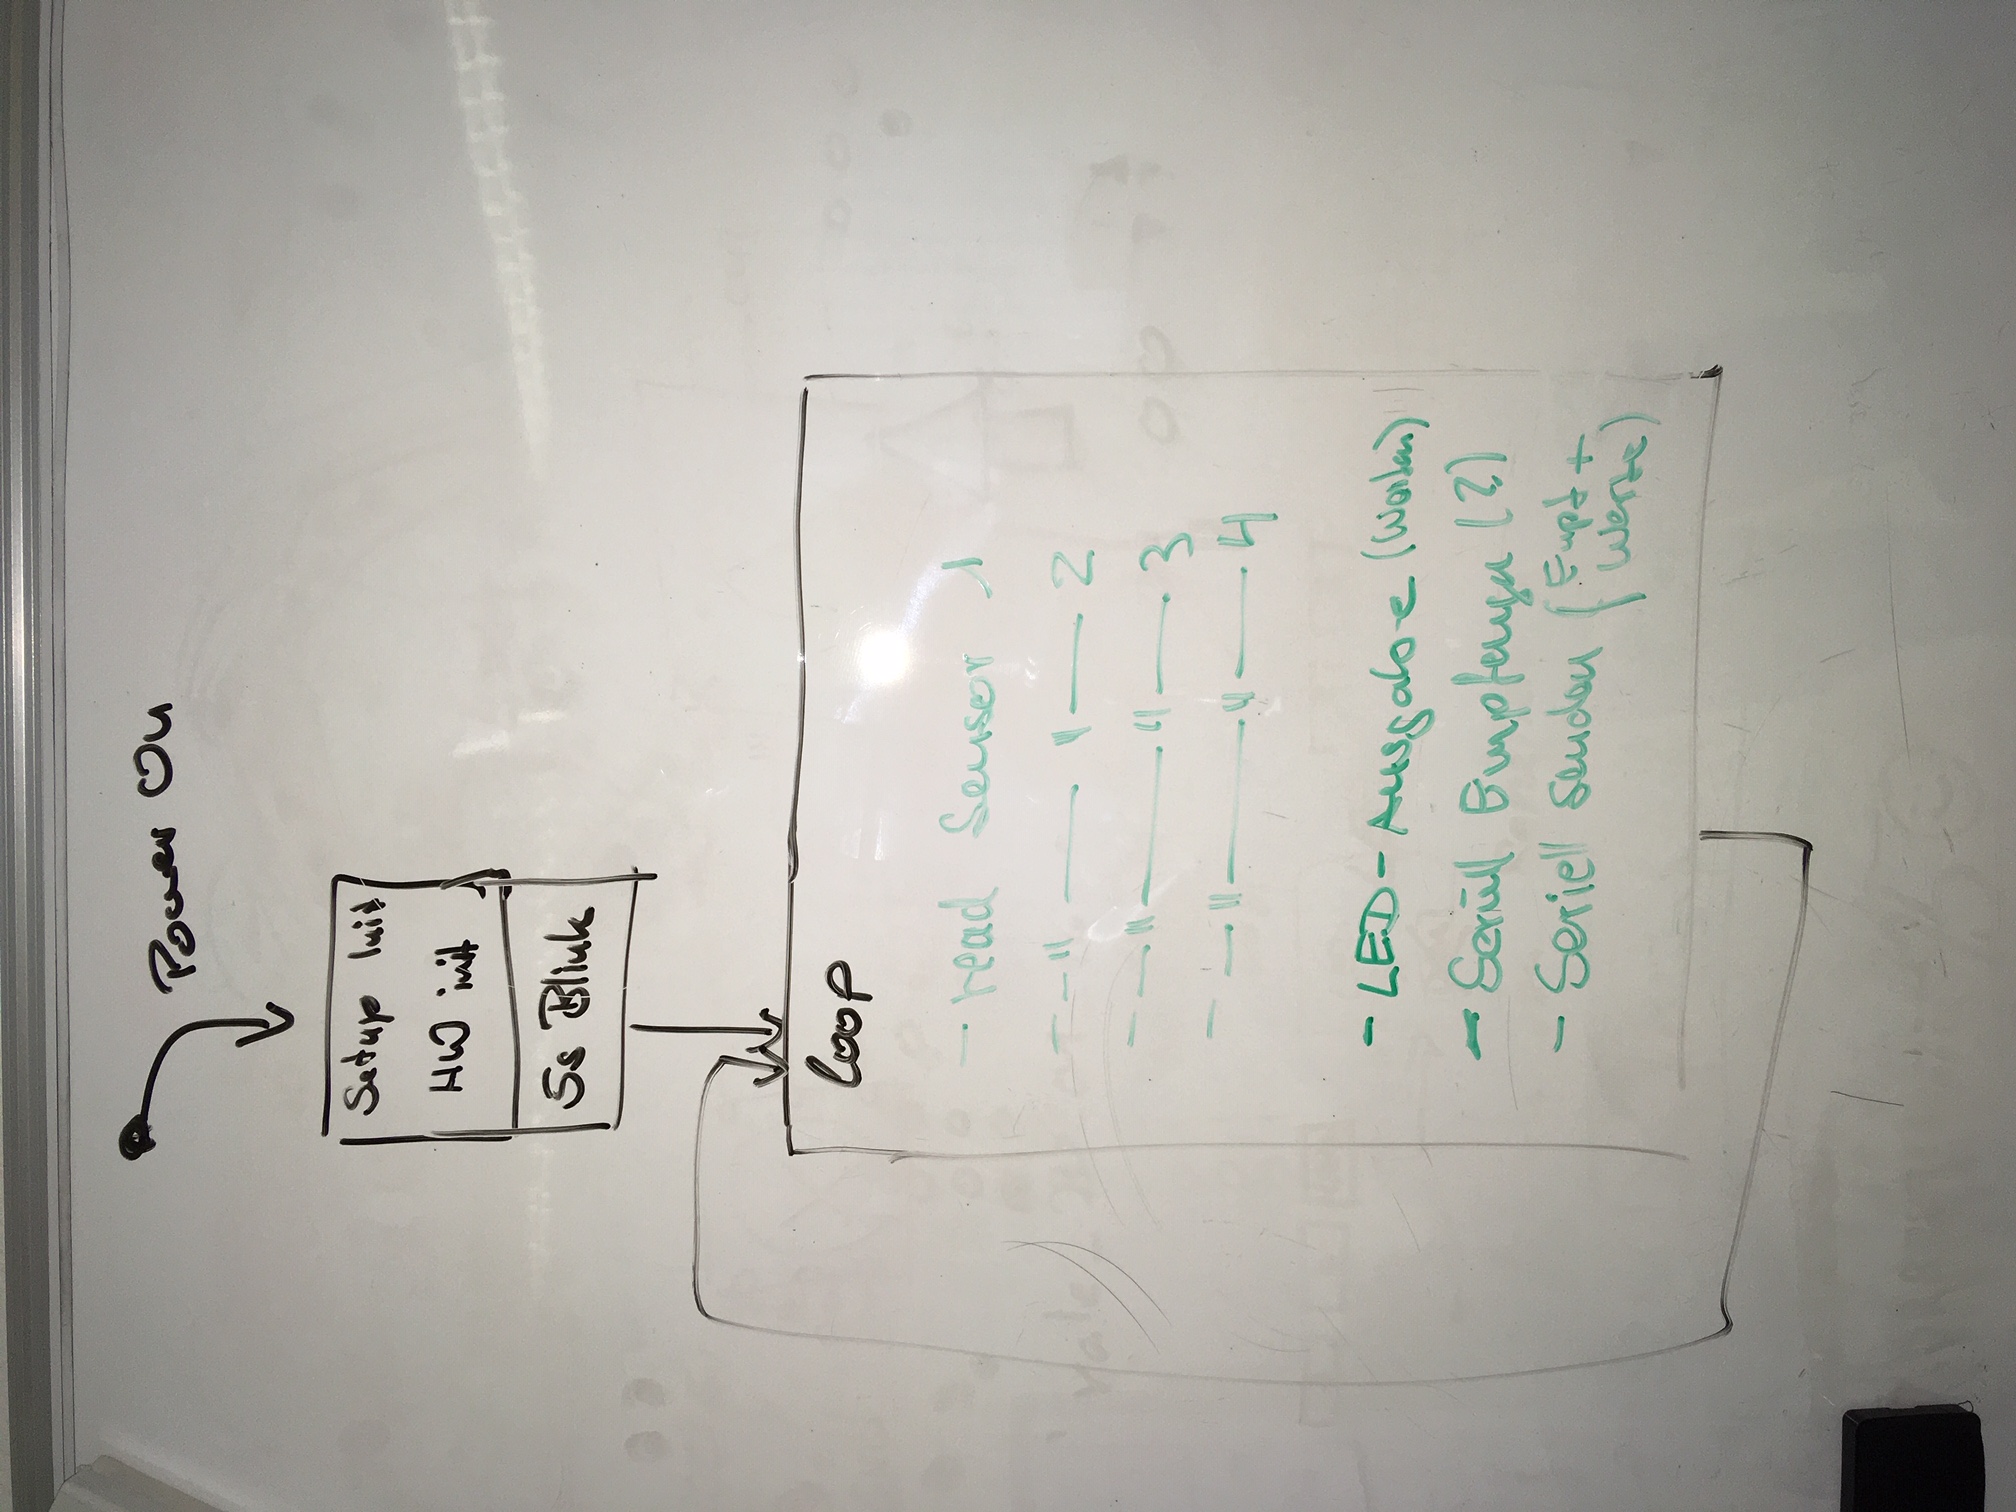 Power On
Setup Init
HW init
5s Blink
loop
- read Sensor 1
- -"- -"- 2
- -"- -"- 3
- -"- -"- 4
- LED-Ausgabe (Werten)
- Seriell Empfangen (?)
- Seriell senden (Empf +
Werte)